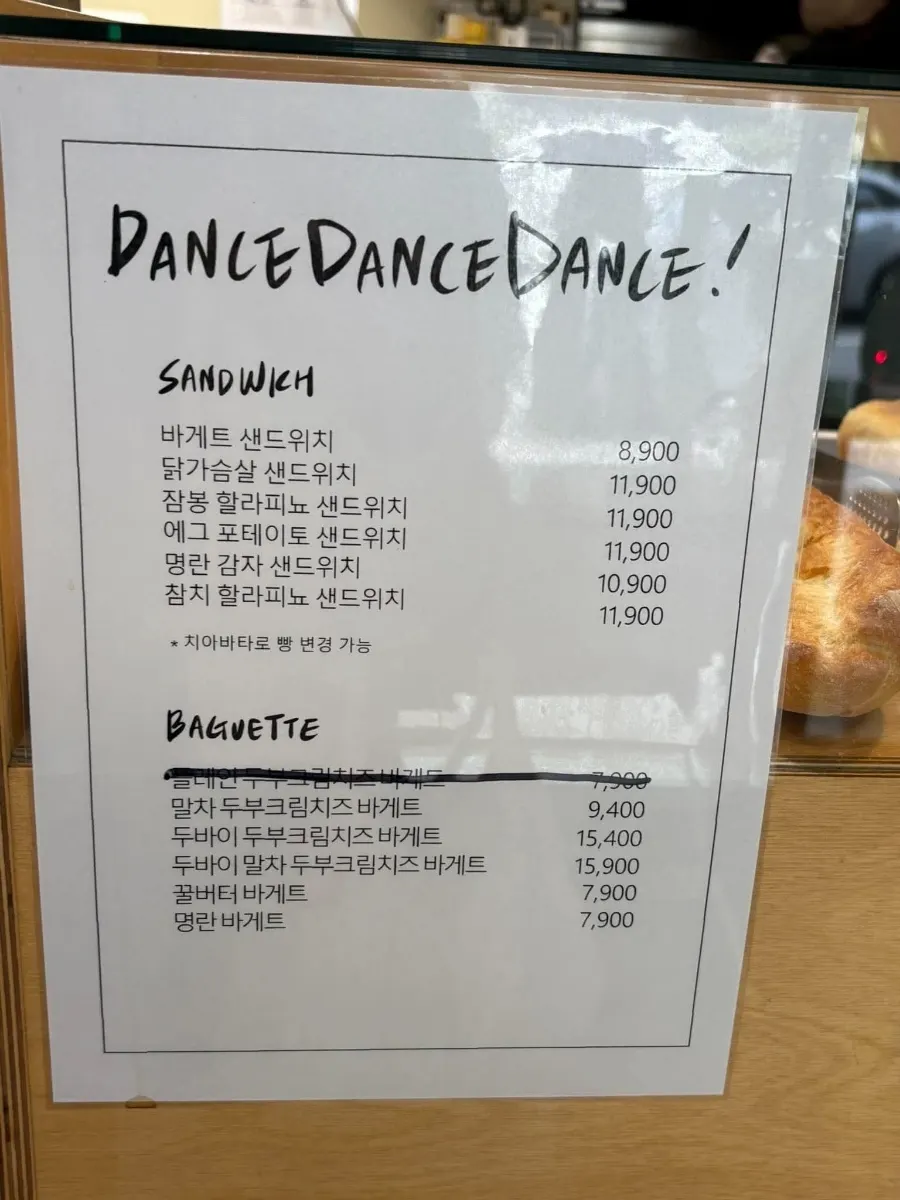 DANCEDANCEDANCE!
SANDWICH
바게트 샌드위치 8,900
닭가슴살 샌드위치 11,900
잠봉 할라피뇨 샌드위치 11,900
에그 포테이토 샌드위치 11,900
명란 감자 샌드위치 10,900
참치 할라피뇨 샌드위치 11,900
* 치아바타로 빵 변경 가능
BAGUETTE
플레인 두부크림치즈 바게트 7,900
말차 두부크림치즈 바게트 9,400
두바이 두부크림치즈 바게트 15,400
두바이 말차 두부크림치즈 바게트 15,900
꿀버터 바게트 7,900
명란 바게트 7,900